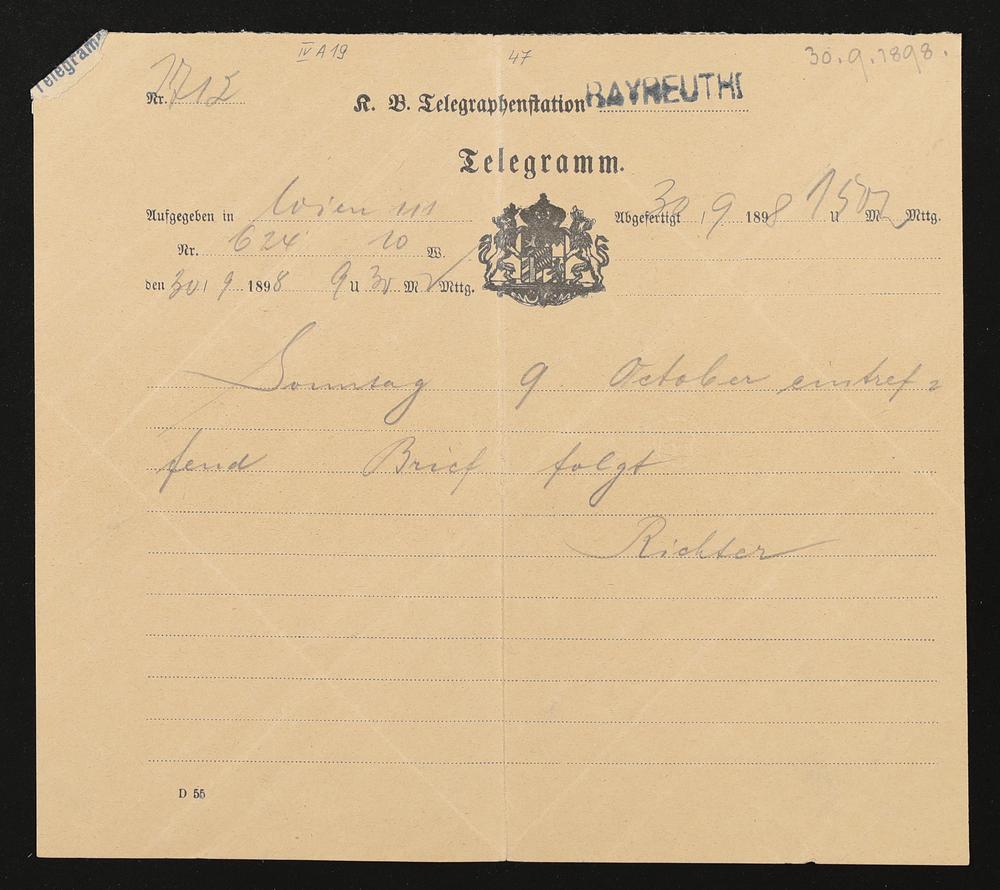 Telegramm
IV A 19
47
30.9.1898.
Nr. 1712
K. B. Telegraphenstation BAYREUTH
Telegramm.
Aufgegeben in Wien
Nr. 624 10 W.
den 30/9 1898 9 U 30 M Mttg.
Abgefertigt 30/9 1898 U M Mttg.
Sonntag 9 October eintref=
fend Brief folgt
Richter
D 55